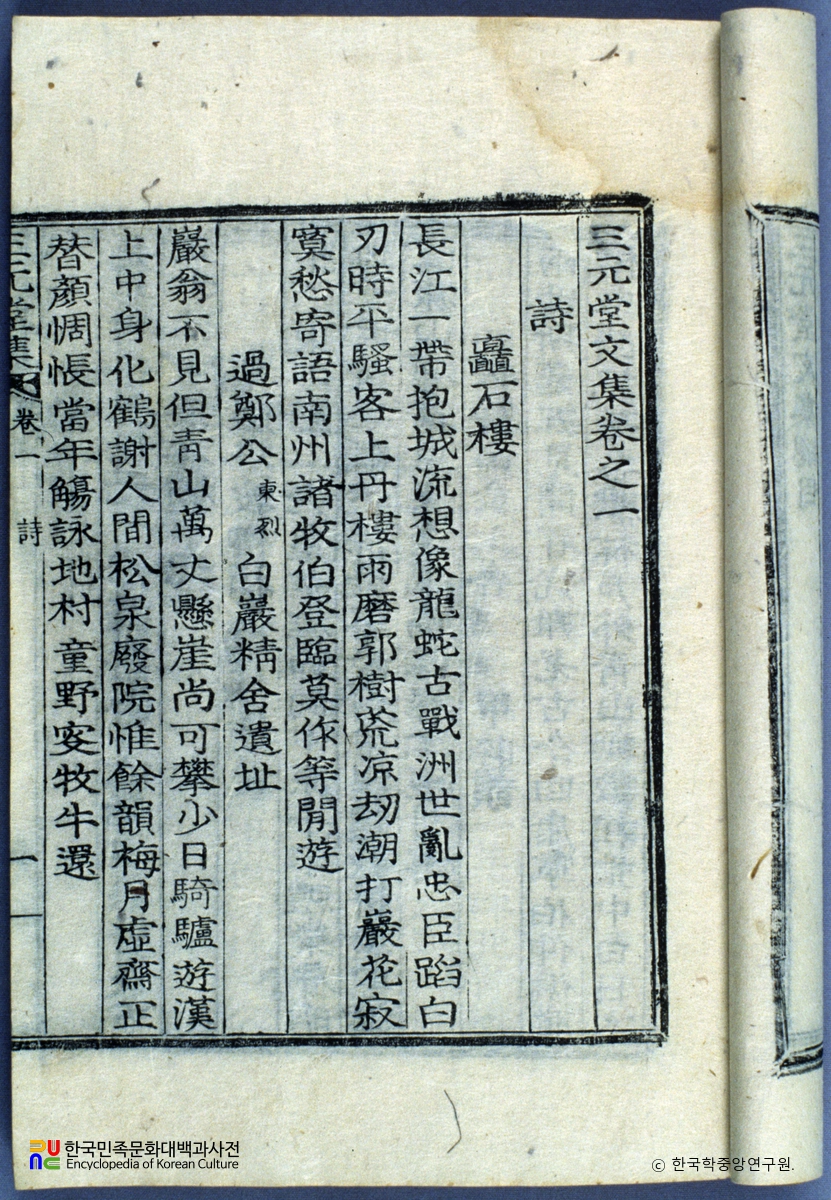 三元堂文集卷之一
詩
矗石樓
長江一帶抱城流想像龍蛇古戰洲世亂忠臣蹈白
刃時平騷客上丹樓雨磨郭樹荒凉刼潮打巖花寂
寞愁寄語南州諸牧伯登臨莫作等閒遊
過鄭公東烈白巖精舍遺址
巖翁不見但靑山萬丈懸崖尚可攀少日騎驢遊漢
上中身化鶴謝人間松泉廢院惟餘韻梅月虛齋正
替顏惆悵當年觴詠地村童野叜牧牛還
三元堂集 卷一 詩 一
한국민족문화대백과사전
Encyclopedia of Korean Culture
© 한국학중앙연구원.